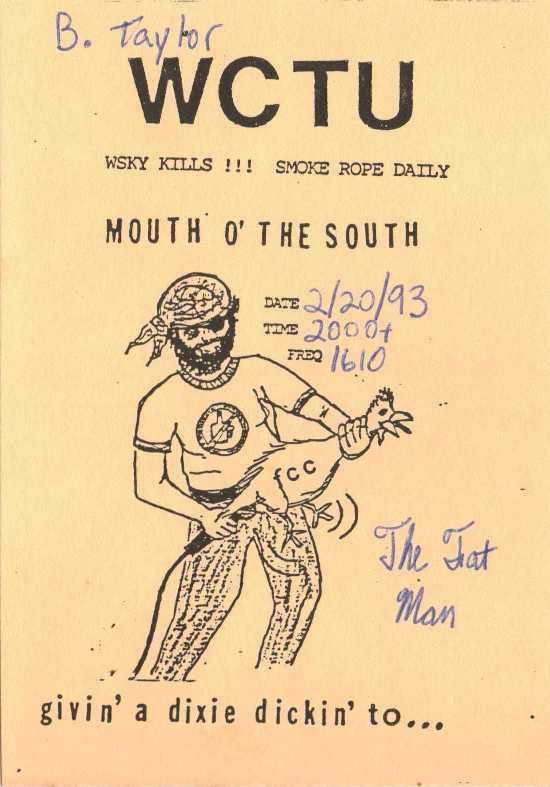 B. Taylor
WCTU
WSKY KILLS !!! SMOKE ROPE DAILY
MOUTH O' THE SOUTH
DATE 2/20/93
TIME 2000+
FREQ 1610
FCC
The Fat
Man
givin' a dixie dickin' to...